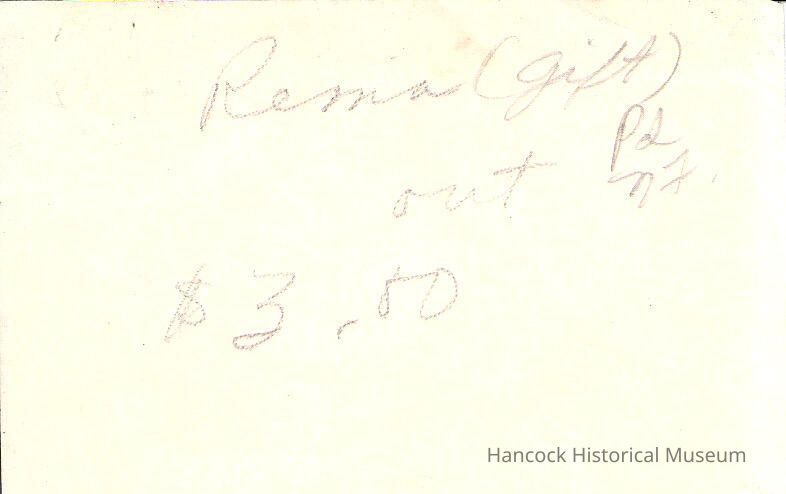 Rema (Gift)
Pd
out
$3.50
Hancock Historical Museum